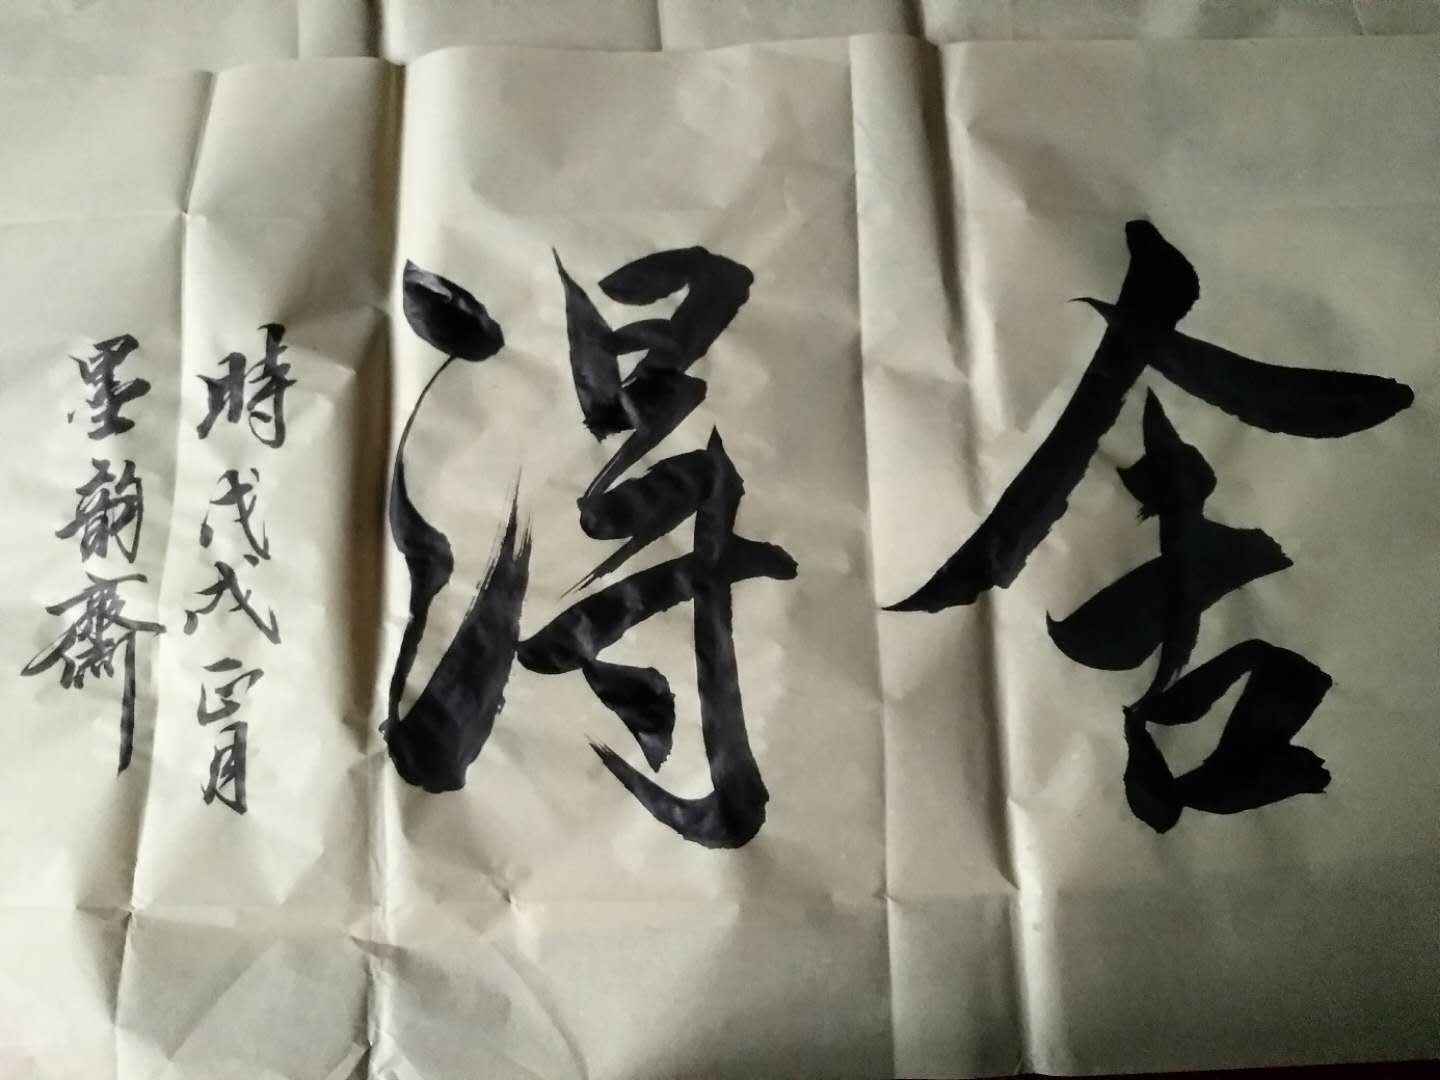 舍得
時戊戌正月
墨韵齋